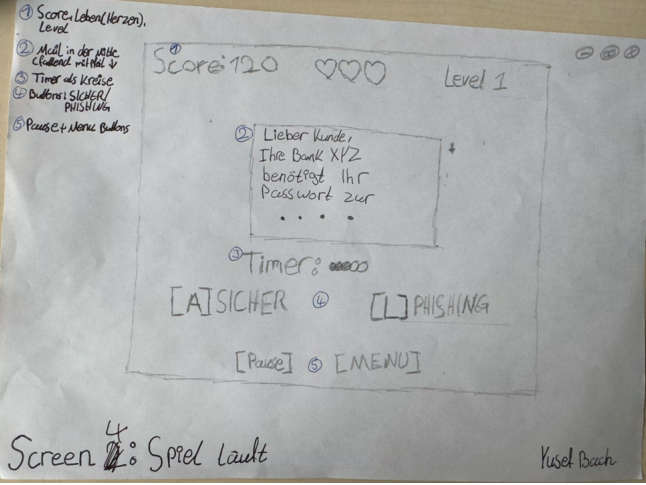 ① Score, Leben (Herzen),
Level
② Mail in der Mitte
(fallend mit Pfeil ↓)
③ Timer als Kreise
④ Buttons: SICHER/
PHISHING
⑤ Pause + Menu Buttons
①
Score: 120 ♡♡♡ Level 1
② Lieber Kunde,
Ihre Bank XYZ
benötigt Ihr
Passwort zur
. . . .
↓
③ Timer: ●●●○○
[A] SICHER ④ [L] PHISHING
[Pause] ⑤ [MENU]
Screen 4: Spiel läuft
Yusef Bach